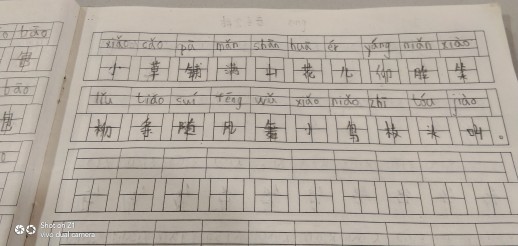 xiǎo cǎo pū mǎn shān huā ér yáng miǎn xiào
小 草 铺 满 山 花 儿 仰 脸 笑
liǔ tiáo suí fēng wǔ xiǎo niǎo zhī tóu jiào
柳 条 随 风 舞 小 鸟 枝 头 叫 。
Shot on Z1
vivo dual camera